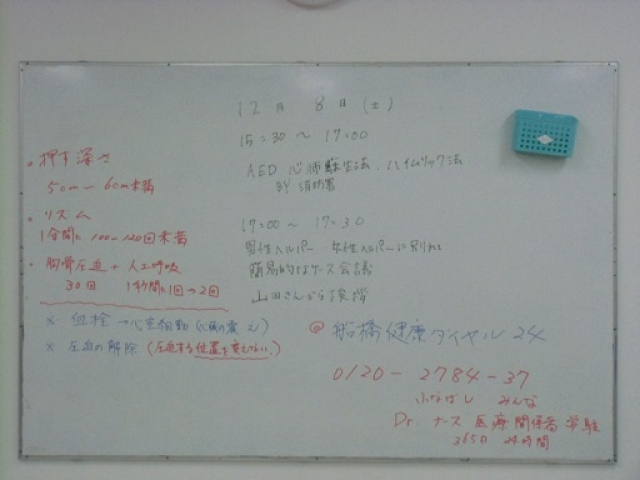 12月 8日(土)
15:30 〜 17:00
AED 心肺蘇生法、ハイムリック法
BY 消防署
17:00 〜 17:30
男性ヘルパー 女性ヘルパーに別れて
簡易的なケース会議
山田さんから挨拶
・押す深さ
5cm〜6cm未満
・リズム
1分間に100〜120回未満
・胸骨圧迫 + 人工呼吸
30回 1秒間に1回→2回
※ 血栓→心室細動(心臓の震え)
× 圧迫の解除(圧迫する位置を変えない。)
@ 船橋健康ダイヤル24
0120-2784-37
ふなばし みんな
Dr. ナース 医療関係者 常駐
365日 24時間